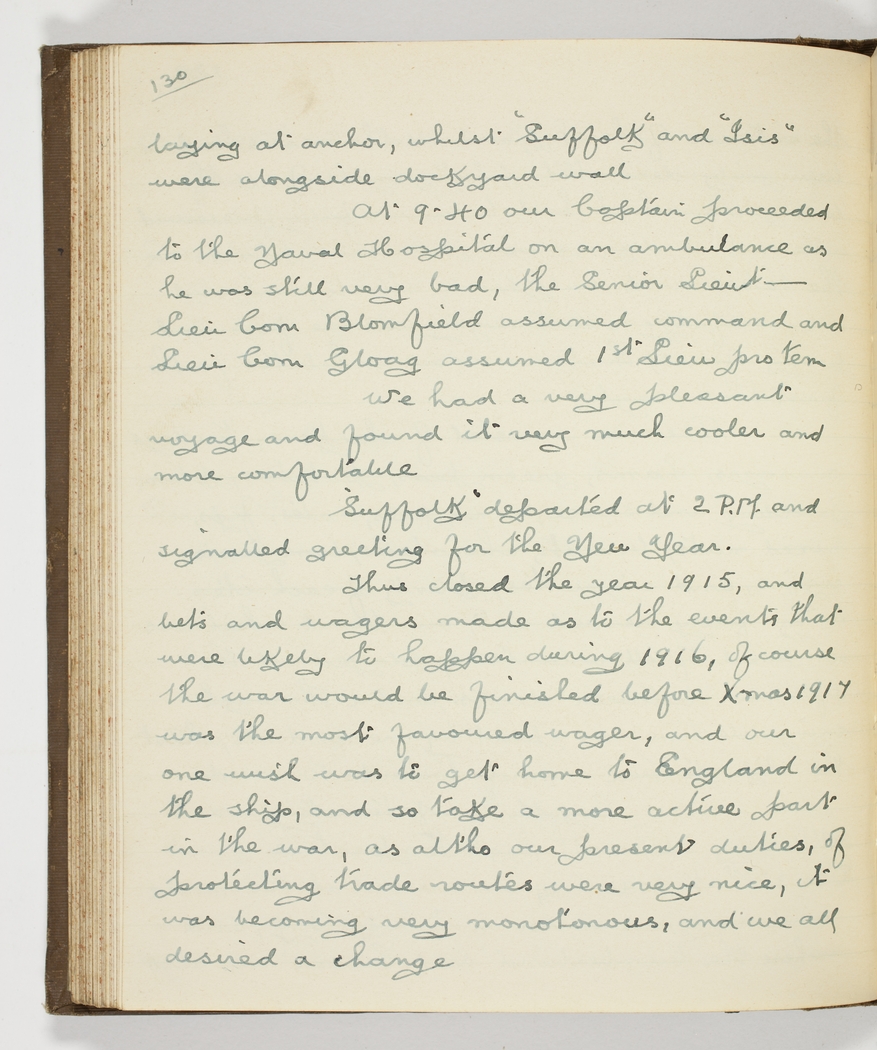 130
laying at anchor, whilst "Suffolk" and "Isis"
were alongside dockyard wall
At 9-40 our Captain proceeded
to the Naval Hospital on an ambulance as
he was still very bad, the Senior Lieut—
Lieu Com Blomfield assumed command and
Lieu Com Gloag assumed 1st Lieu pro tem
We had a very pleasant
voyage and found it very much cooler and
more comfortable
"Suffolk" departed at 2 P.M. and
signalled greeting for the New Year.
Thus closed the year 1915, and
bets and wagers made as to the events that
were likely to happen during 1916, of course
the war would be finished before Xmas 1917
was the most favoured wager, and our
one wish was to get home to England in
the ship, and so take a more active part
in the war, as altho our present duties, of
protecting trade routes were very nice, it
was becoming very monotonous, and we all
desired a change